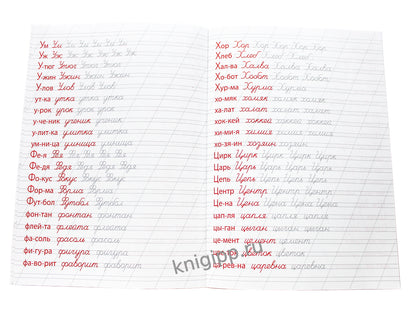 Ум Ум Ум Ум Ум Ум
Уж Уж Уж Уж Уж Уж
У-тюг Утюг Утюг Утюг
У-жин Ужин Ужин Ужин
У-лов Улов Улов Улов
ут-ка утка утка утка
у-рок урок урок урок
у-че-ник ученик ученик
у-лит-ка улитка улитка
ум-ни-ца умница умница
Фе-я Фея Фея Фея Фея
Фе-дя Федя Федя Федя
Фо-кус Фокус Фокус
Фор-ма Форма Форма
Фут-бол Футбол Футбол
фон-тан фонтан фонтан
флей-та флейта флейта
фа-соль фасоль фасоль
фи-гу-ра фигура фигура
фа-во-рит фаворит фаворит
Хор Хор Хор Хор Хор Хор
Хлеб Хлеб Хлеб Хлеб
Хал-ва Халва Халва Халва
Хо-бот Хобот Хобот Хобот
Хур-ма Хурма Хурма Хурма
хо-мяк хомяк хомяк хомяк
ха-лат халат халат халат
хок-кей хоккей хоккей хоккей
хи-ми-я химия химия химия
хо-зя-ин хозяин хозяин
Цирк Цирк Цирк Цирк Цирк
Царь Царь Царь Царь Царь
Цепь Цепь Цепь Цепь Цепь
Центр Центр Центр Центр
Це-на Цена Цена Цена Цена
цап-ля цапля цапля цапля
цы-ган цыган цыган цыган
це-мент цемент цемент
цве-ток цветок цветок
ца-рев-на царевна царевна
knigipp.ru